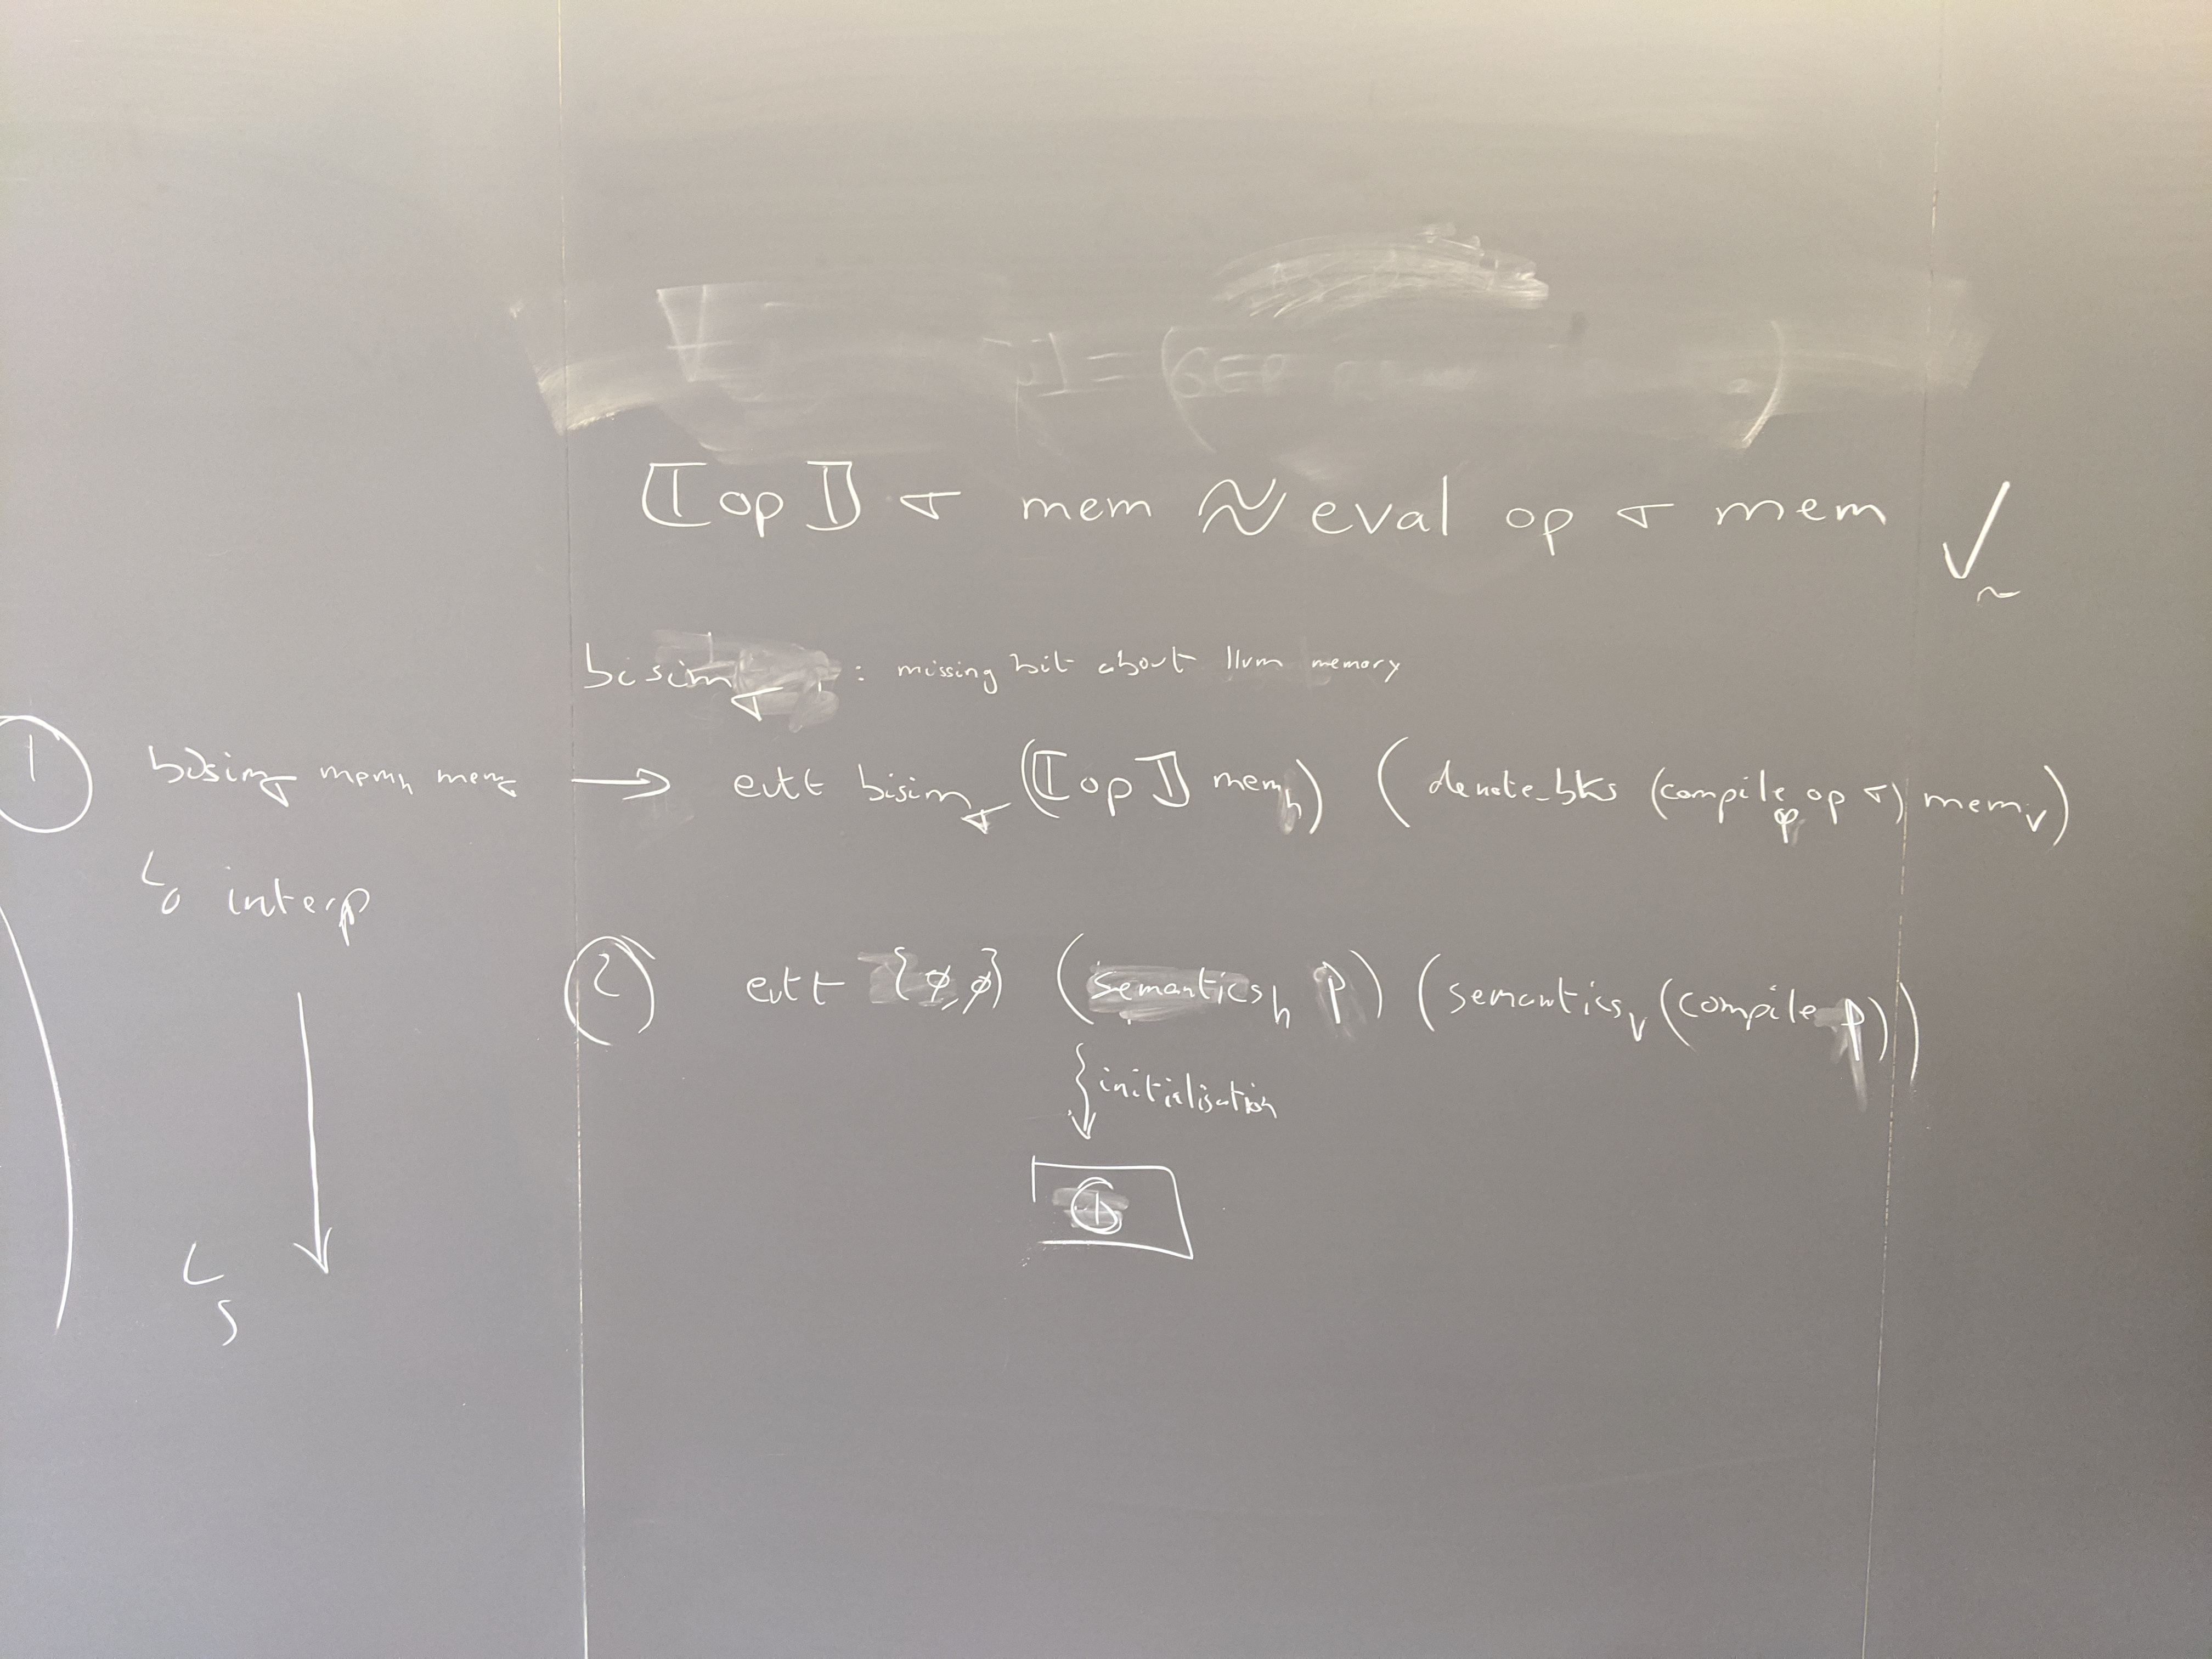 = (GEP )
⟦op⟧ σ mem ≈ eval op σ mem ✓~
bisim_σ : missing bit about llvm memory
① bisim_σ mem_h mem_σ → eutt bisim_σ (⟦op⟧ mem_h) (denote_bks (compile_φ op σ) mem_v)
L0 interp
② eutt {φ,φ} (semantics_h p) (semantics_v (compile p))
initialisation
①
L5